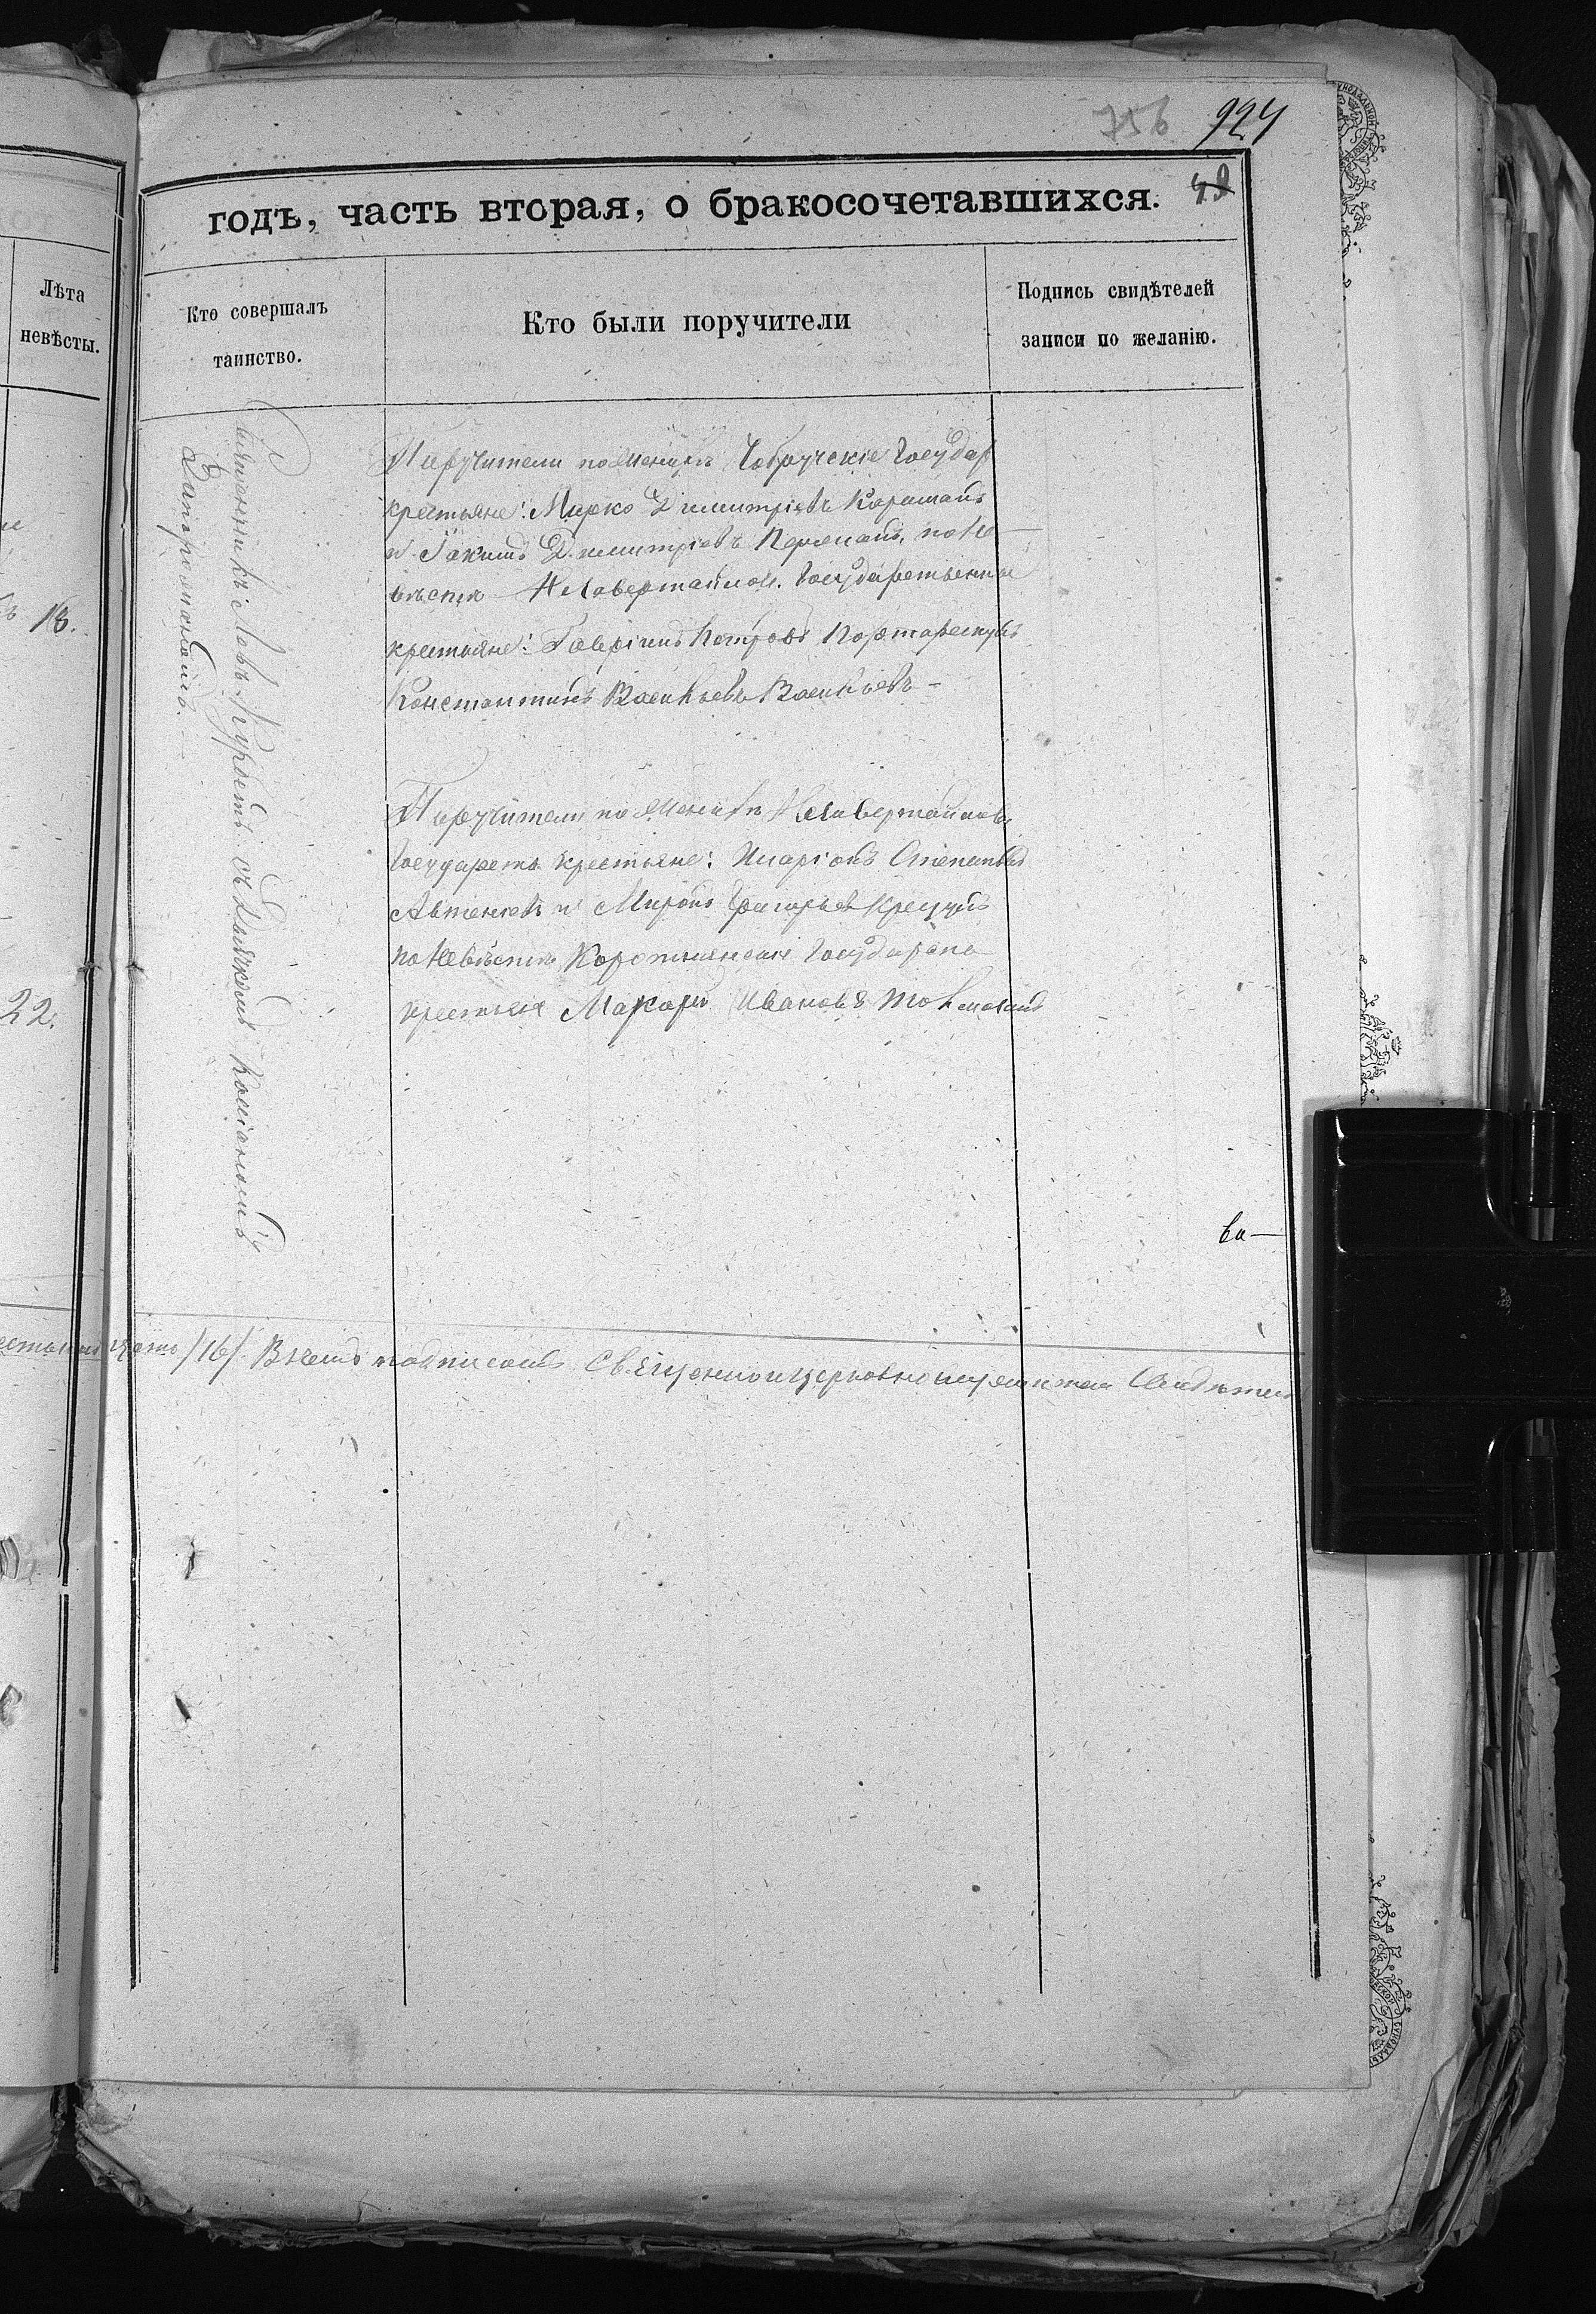 756 924
49
годъ, часть вторая, о бракосочетавшихся.
Лѣта
невѣсты.
Кто совершалъ
таинство.
Кто были поручители
Подпись свидѣтелей
записи по желанію.
18.
22.
Священникъ Левъ Курбетъ съ Дьячкомъ
Поручители по Женихѣ Чобручскіе Государ
крестьяне: Мирко Димитріевъ Караманъ
и Іакимъ Димитріевъ Караманъ, по Не
вѣстѣ Незавертайлов. Государственные
крестьяне: Гавріилъ Петровъ
Константинъ Васильевъ Васильевъ
Поручители по Женихѣ Незавертайлов.
Государств. крестьяне: Иларіонъ Степановъ
и Миронъ Григорьевъ Крецулъ
по Невѣстѣ Коротнянскій Государств
крестьян Макарій Ивановъ
ва—
/16/. Въ чемъ подписомъ Священноицерковнослужители